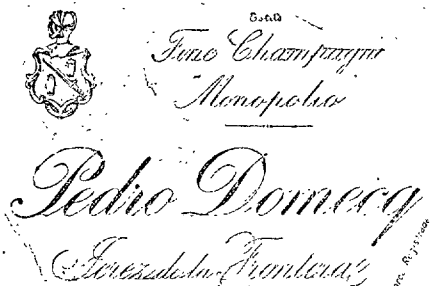 Fine Champagne
Monopolio
Pedro Domecq
Jerez de la Frontera